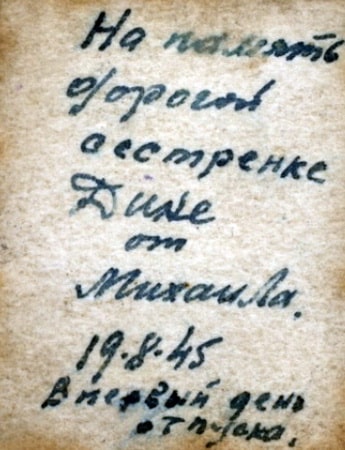 На память
дорогой
сестренке
Дине
от
Михаила.
19.8.45
В первый день
отпуска.